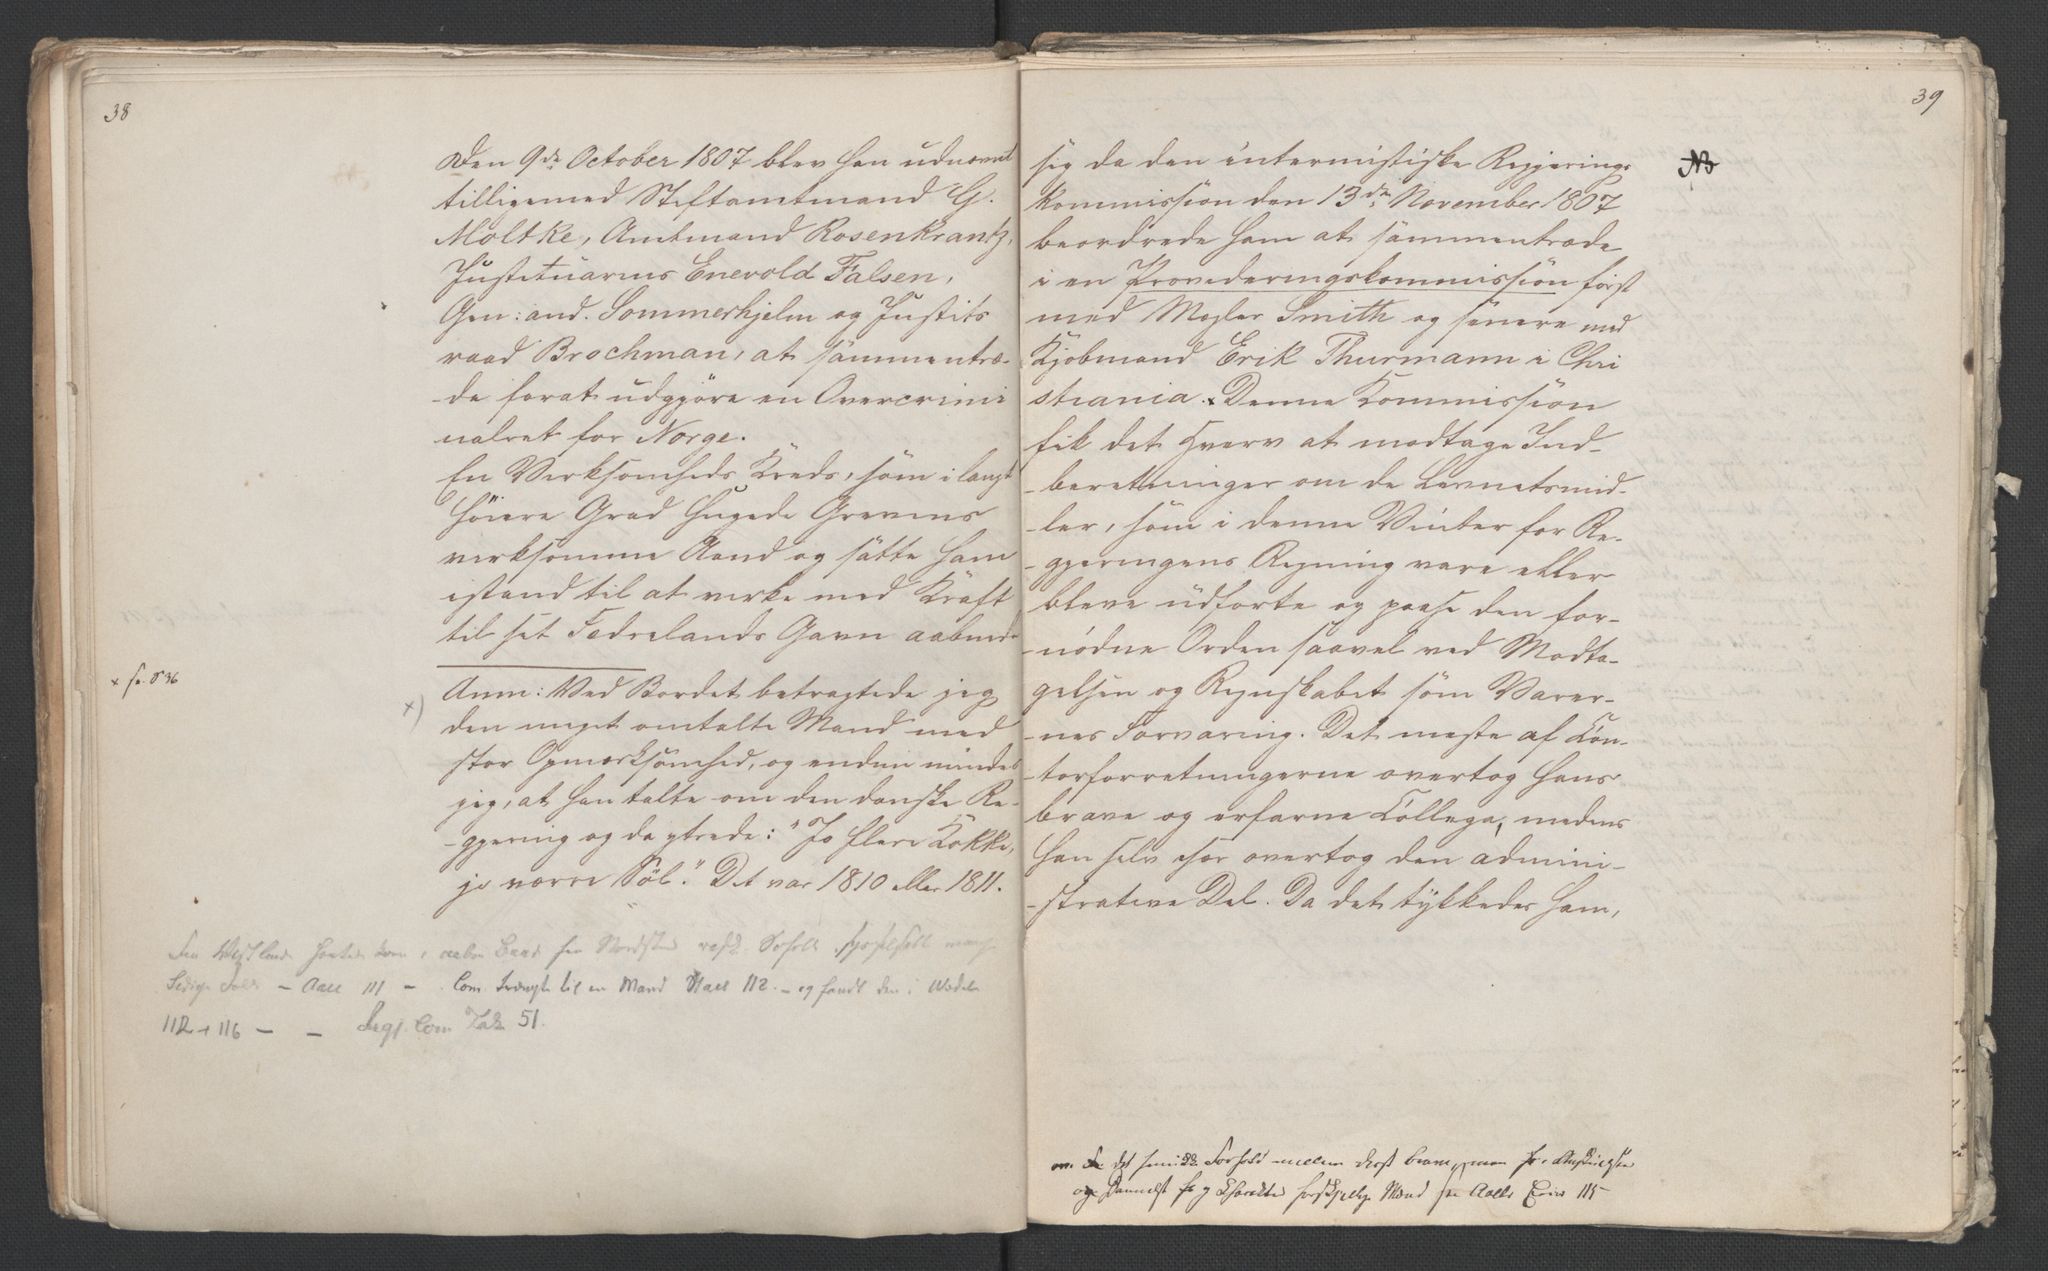 38
Den 9de October 1807 blev han udnævnt
tilligemed Stiftamtmand G.
Moltke, Amtmand Rosenkrantz,
Justituarius Enevold Falsen,
Gen: aud. Sommerhjelm og Justits
raad Brochman, at sammentræ-
-de forat udgjøre en Overcrimi
nalret for Norge.
En Virksomheds Kreds, som i langt
høiere Grad hugede Grevens
virksomme Aand og satte ham
istand til at virke med Kraft
til sit Fædrelands Gavn aabnede
x se. S 36
x) Anm: Ved Bordet betragtede jeg
den meget omtalte Mand med
stor Opmærksomhed, og endnu mindes
jeg, at han talte om den danske Re-
-gjering og da ytrede: "Jo flere Kokke,
jo værre Søl." Det var 1810 eller 1811.
Aall 111 - Com. trængte til en Mand Aall 112. - og fandt den i Wedel
112 + 116 - - Regj. Com 51.
39
sig da den intermistiske Regjerings
kommission den 13de November 1807
beordrede ham at sammentræde
i en Provideringskommission først
med Mægler Smith og senere med
Kjøbmand Erik Thurmann i Chri
stiania. Denne Kommission
fik det Hverv at modtage Ind-
-beretninger om de Levnetsmid-
-ler, som i denne Vinter for Re-
-gjeringens Regning vare eller
bleve udførte og paase den for-
-nødne Orden saavel ved Modta-
gelsen og Regnskabet som Varer-
-nes Forvaring. Det meste af Kon-
-torforretningerne overtog hans
brave og erfarne Collega, medens
han selv især overtog den admini-
-strative Del. Da det tykkedes ham,
NB
det Forhold mellem disse brave, men
og Charakter forskjellige Mænd se Aalls Erin 115